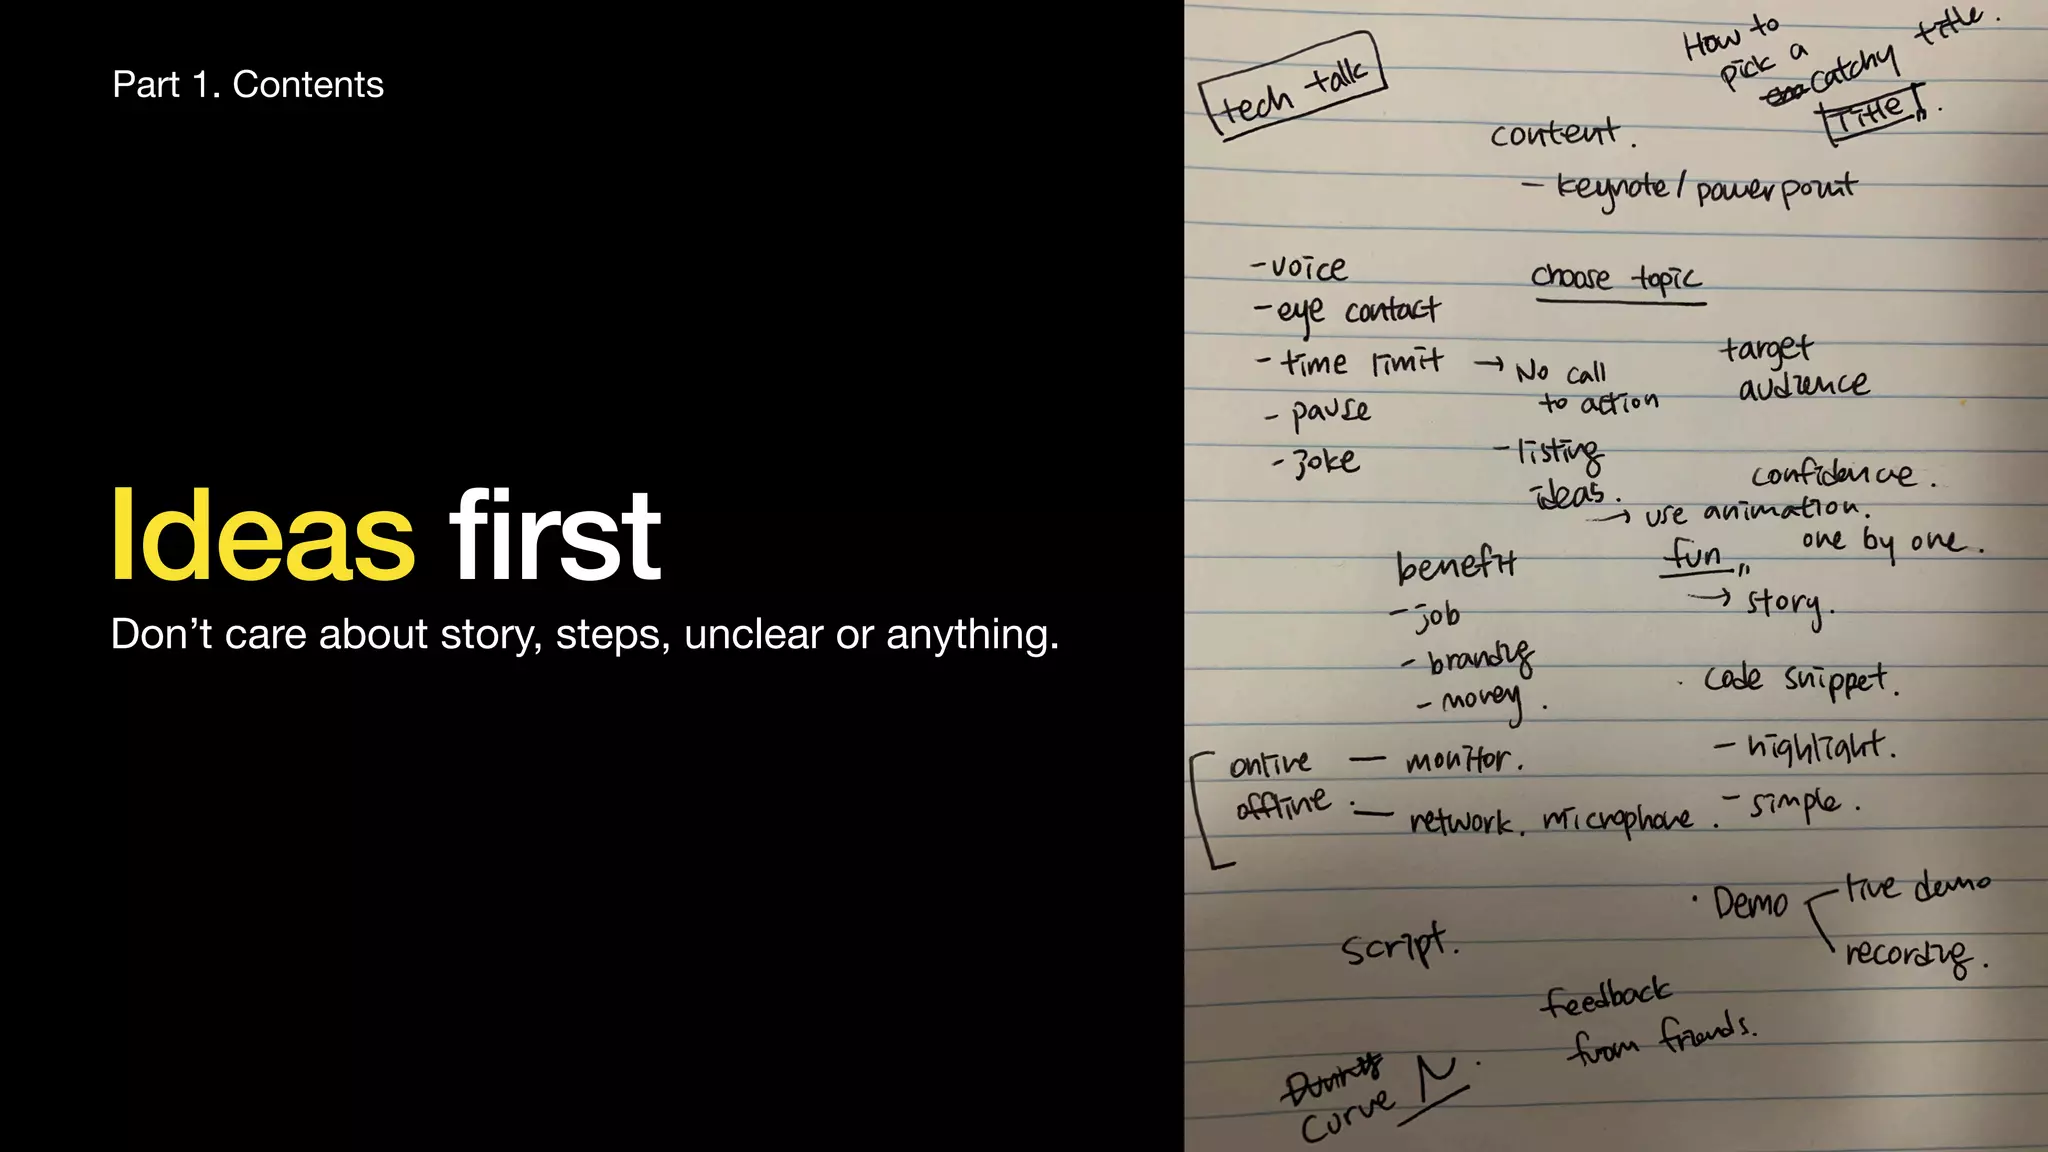 Part 1. Contents
Ideas first
Don't care about story, steps, unclear or anything.
tech talk
How to
pick a
catchy title.
Title
content.
- keynote / powerpoint
- voice
- eye contact
- time limit → No call
to action
- pause
- joke
choose topic
target
audience
- listing
ideas.
→ use animation.
one by one.
confidence.
benefit
- job
- brandig
- money.
fun
→ story.
· code snippet.
- highlight.
- simple.
online — monitor.
offline. — network. microphone.
· Demo
live demo
recordig.
script.
feedback
from friends.
curve